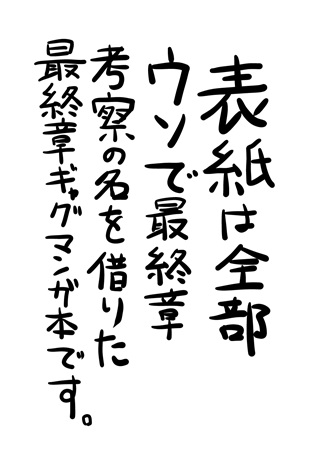 表紙は全部
ウソで最終章
考察の名を借りた
最終章ギャグマンガ本です。